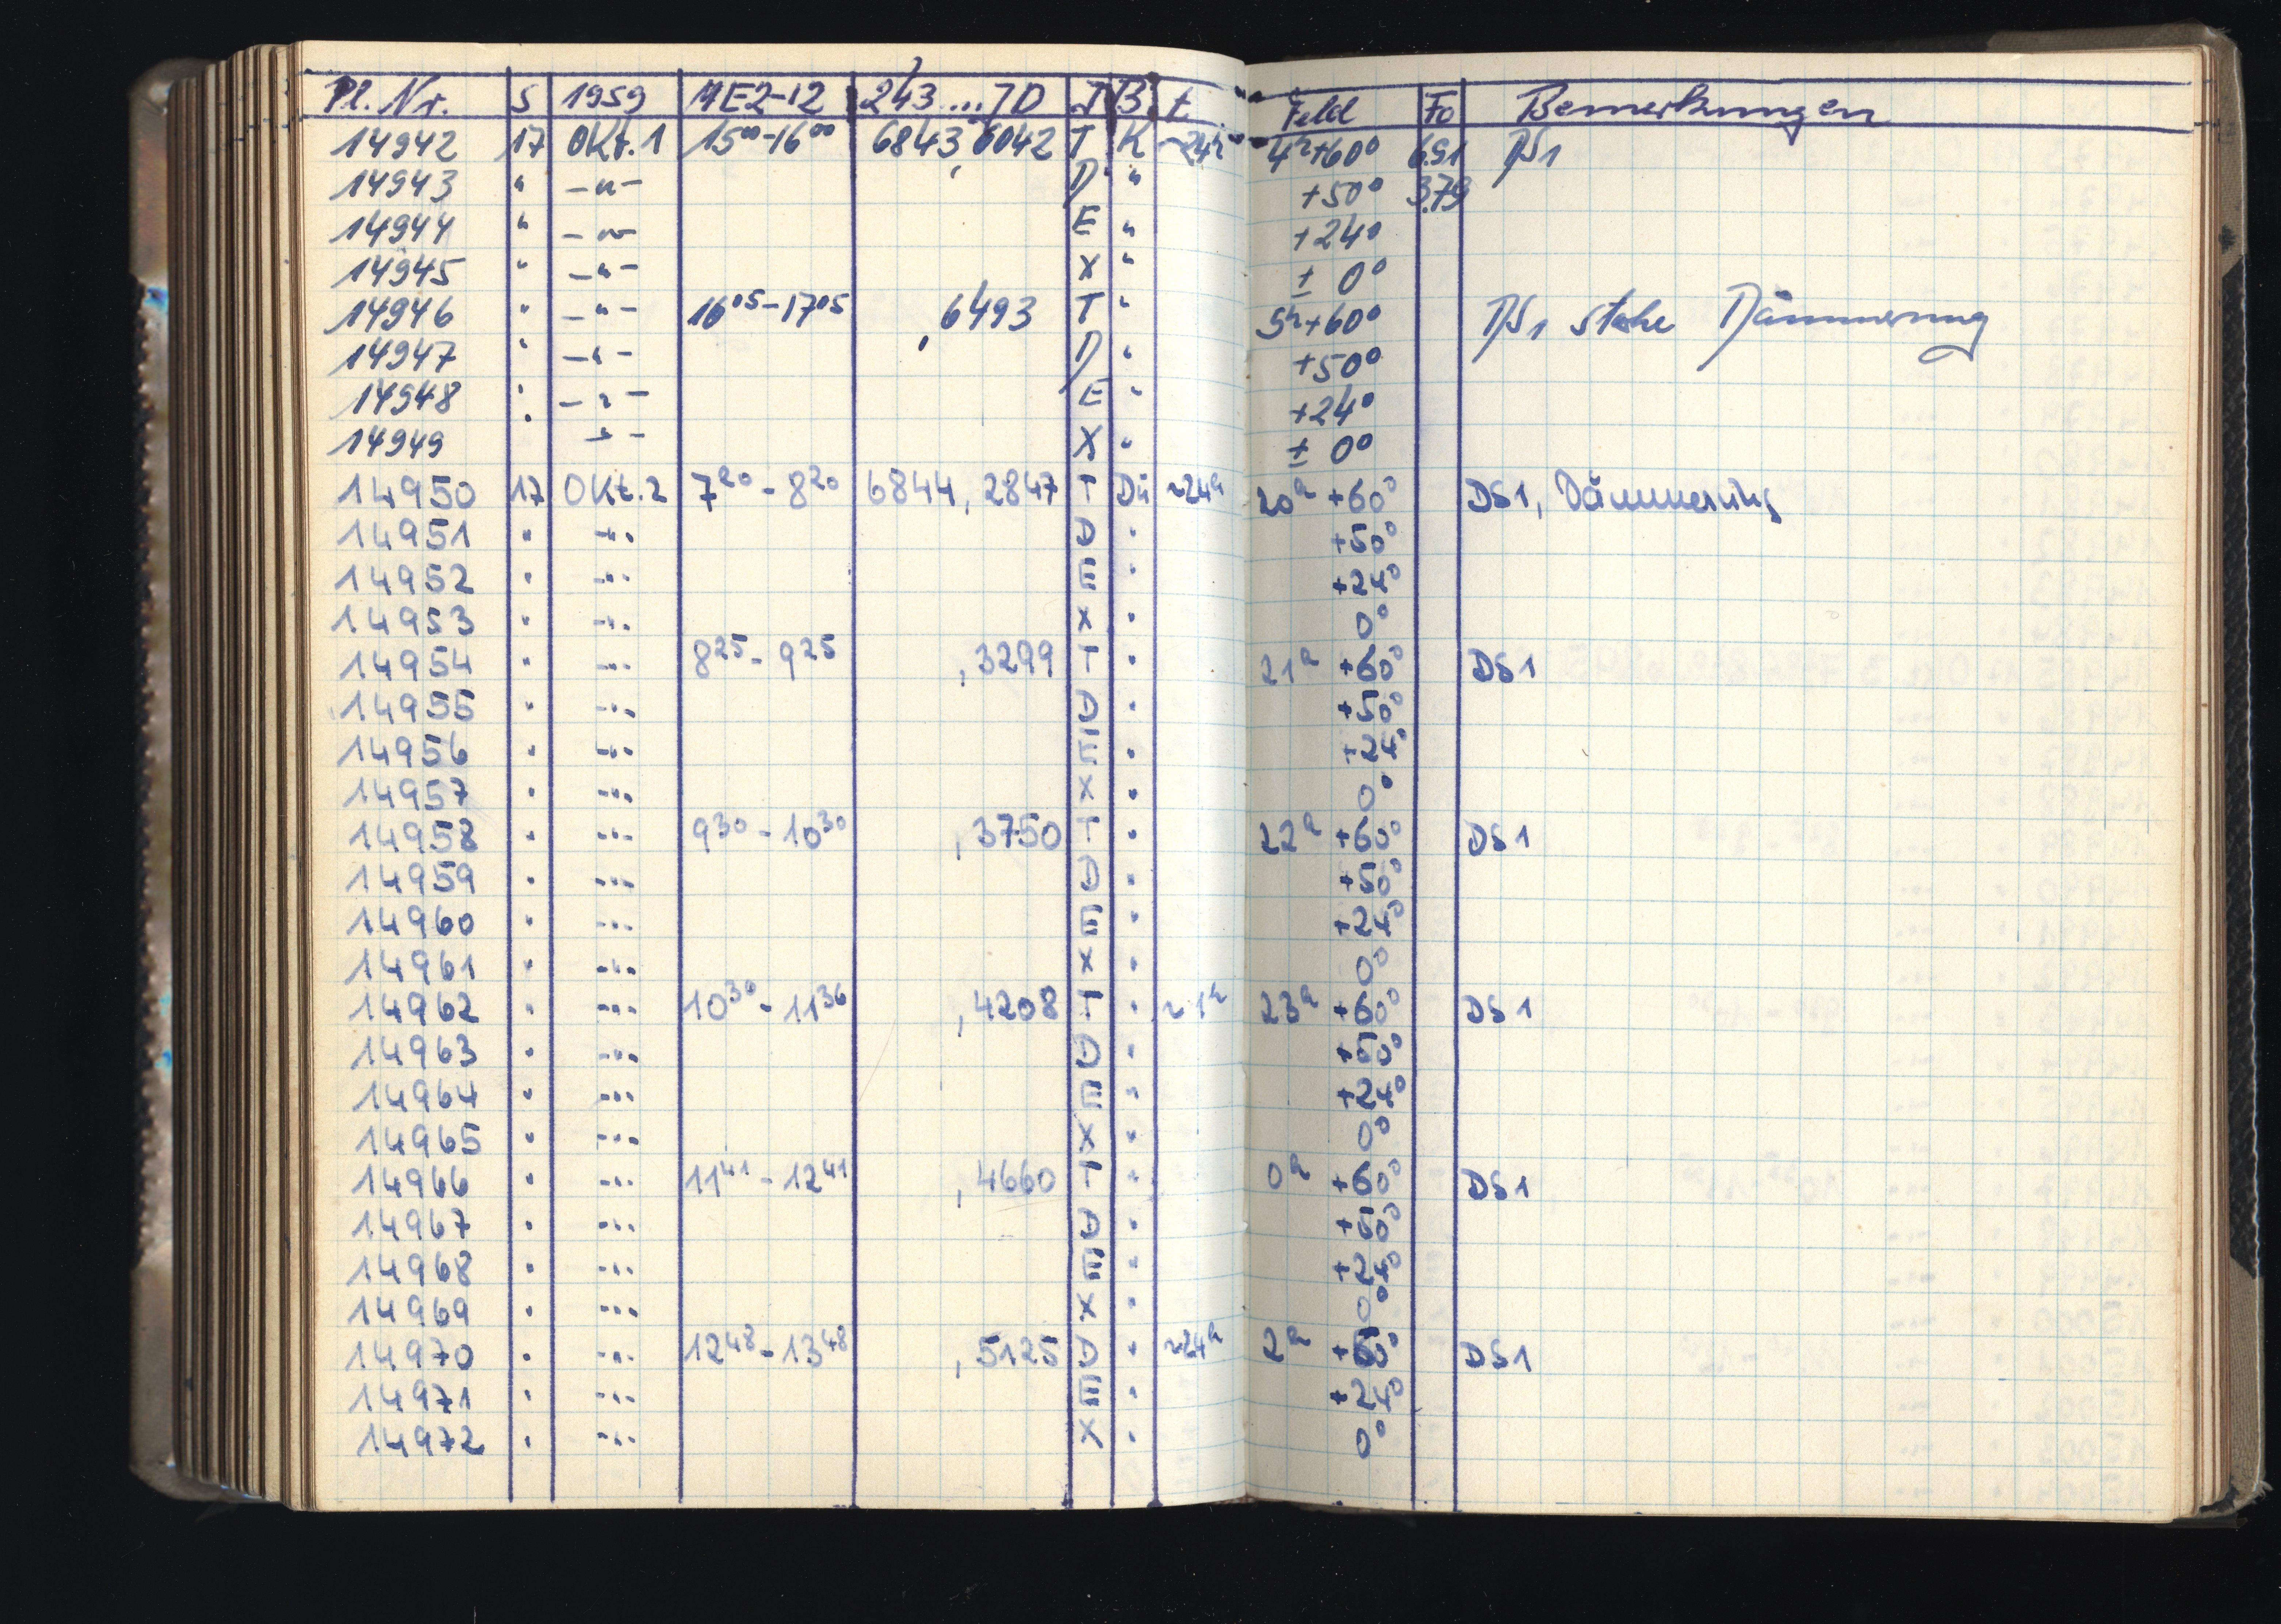 Pl. Nr. S 1959 MEZ-12 243....JD J B t Feld Fo Bemerkungen
14942 17 Okt. 1 15⁰⁰-16⁰⁰ 6843,6042 T K ~24h 4h+60° 6.91 DS1
14943 " -"- D " +50° 3.79
14944 " -"- E " +24°
14945 " -"- X " ± 0°
14946 " -"- 16⁰⁵-17⁰⁵ ,6493 T " 5h+60° DS1 Dämmerung
14947 " -"- D " +50°
14948 " -"- E " +24°
14949 -"- X " ± 0°
14950 17 Okt. 2 7²⁰-8²⁰ 6844,2847 T Dü ~24h 20h +60° DS1, Dämmerung
14951 " -"- D " +50°
14952 " -"- E " +24°
14953 " -"- X " 0°
14954 " -"- 8²⁵-9²⁵ ,3299 T " 21h +60° DS1
14955 " -"- D " +50°
14956 " -"- E " +24°
14957 " -"- X " 0°
14958 " -"- 9³⁰-10³⁰ ,3750 T " 22h +60° DS1
14959 " -"- D " +50°
14960 " -"- E " +24°
14961 " -"- X " 0°
14962 " -"- 10³⁶-11³⁶ ,4208 T " ~1h 23h +60° DS1
14963 " -"- D " +50°
14964 " -"- E " +24°
14965 " -"- X " 0°
14966 " -"- 11⁴¹-12⁴¹ ,4660 T " 0h +60° DS1
14967 " -"- D " +50°
14968 " -"- E " +24°
14969 " -"- X " 0°
14970 " -"- 12⁴⁸-13⁴⁸ ,5125 D " ~24h 2h +50° DS1
14971 " -"- E " +24°
14972 " -"- X " 0°